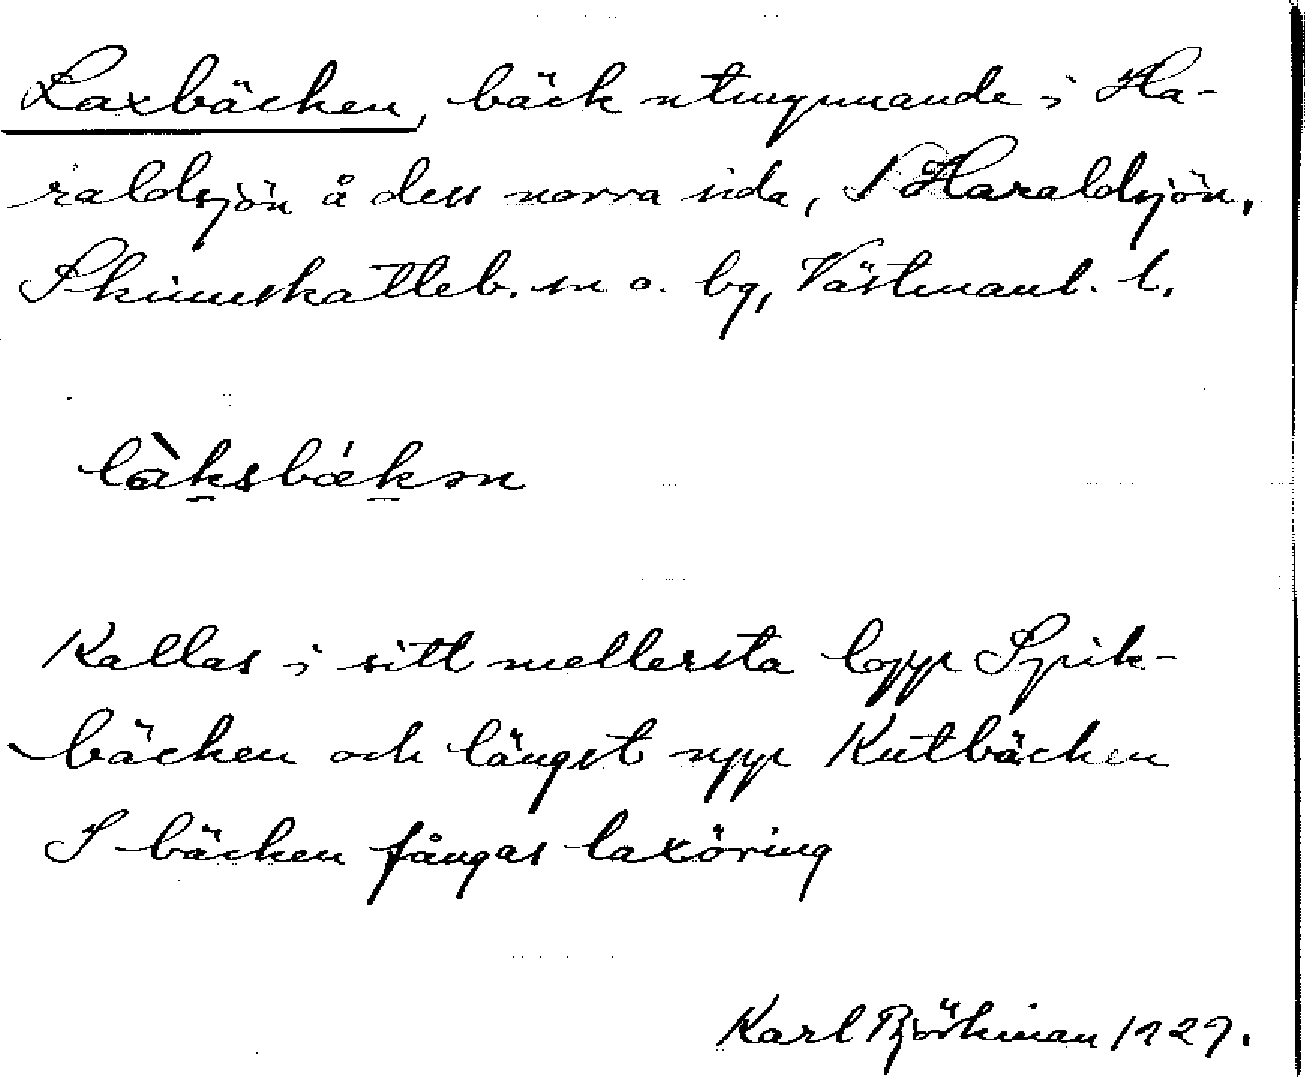 Laxbäcken, bäck utmynnande i Ha-
raldsjön å dess norra sida, N Haraldsjön,
Skinnskatteb. sn o. bg, Västmanl. l.
làksbä́kən
Kallas i sitt mellersta lopp Spik-
bäcken och längst upp Kutbäcken
I bäcken fångas laxöring
Karl Björkman 1929.